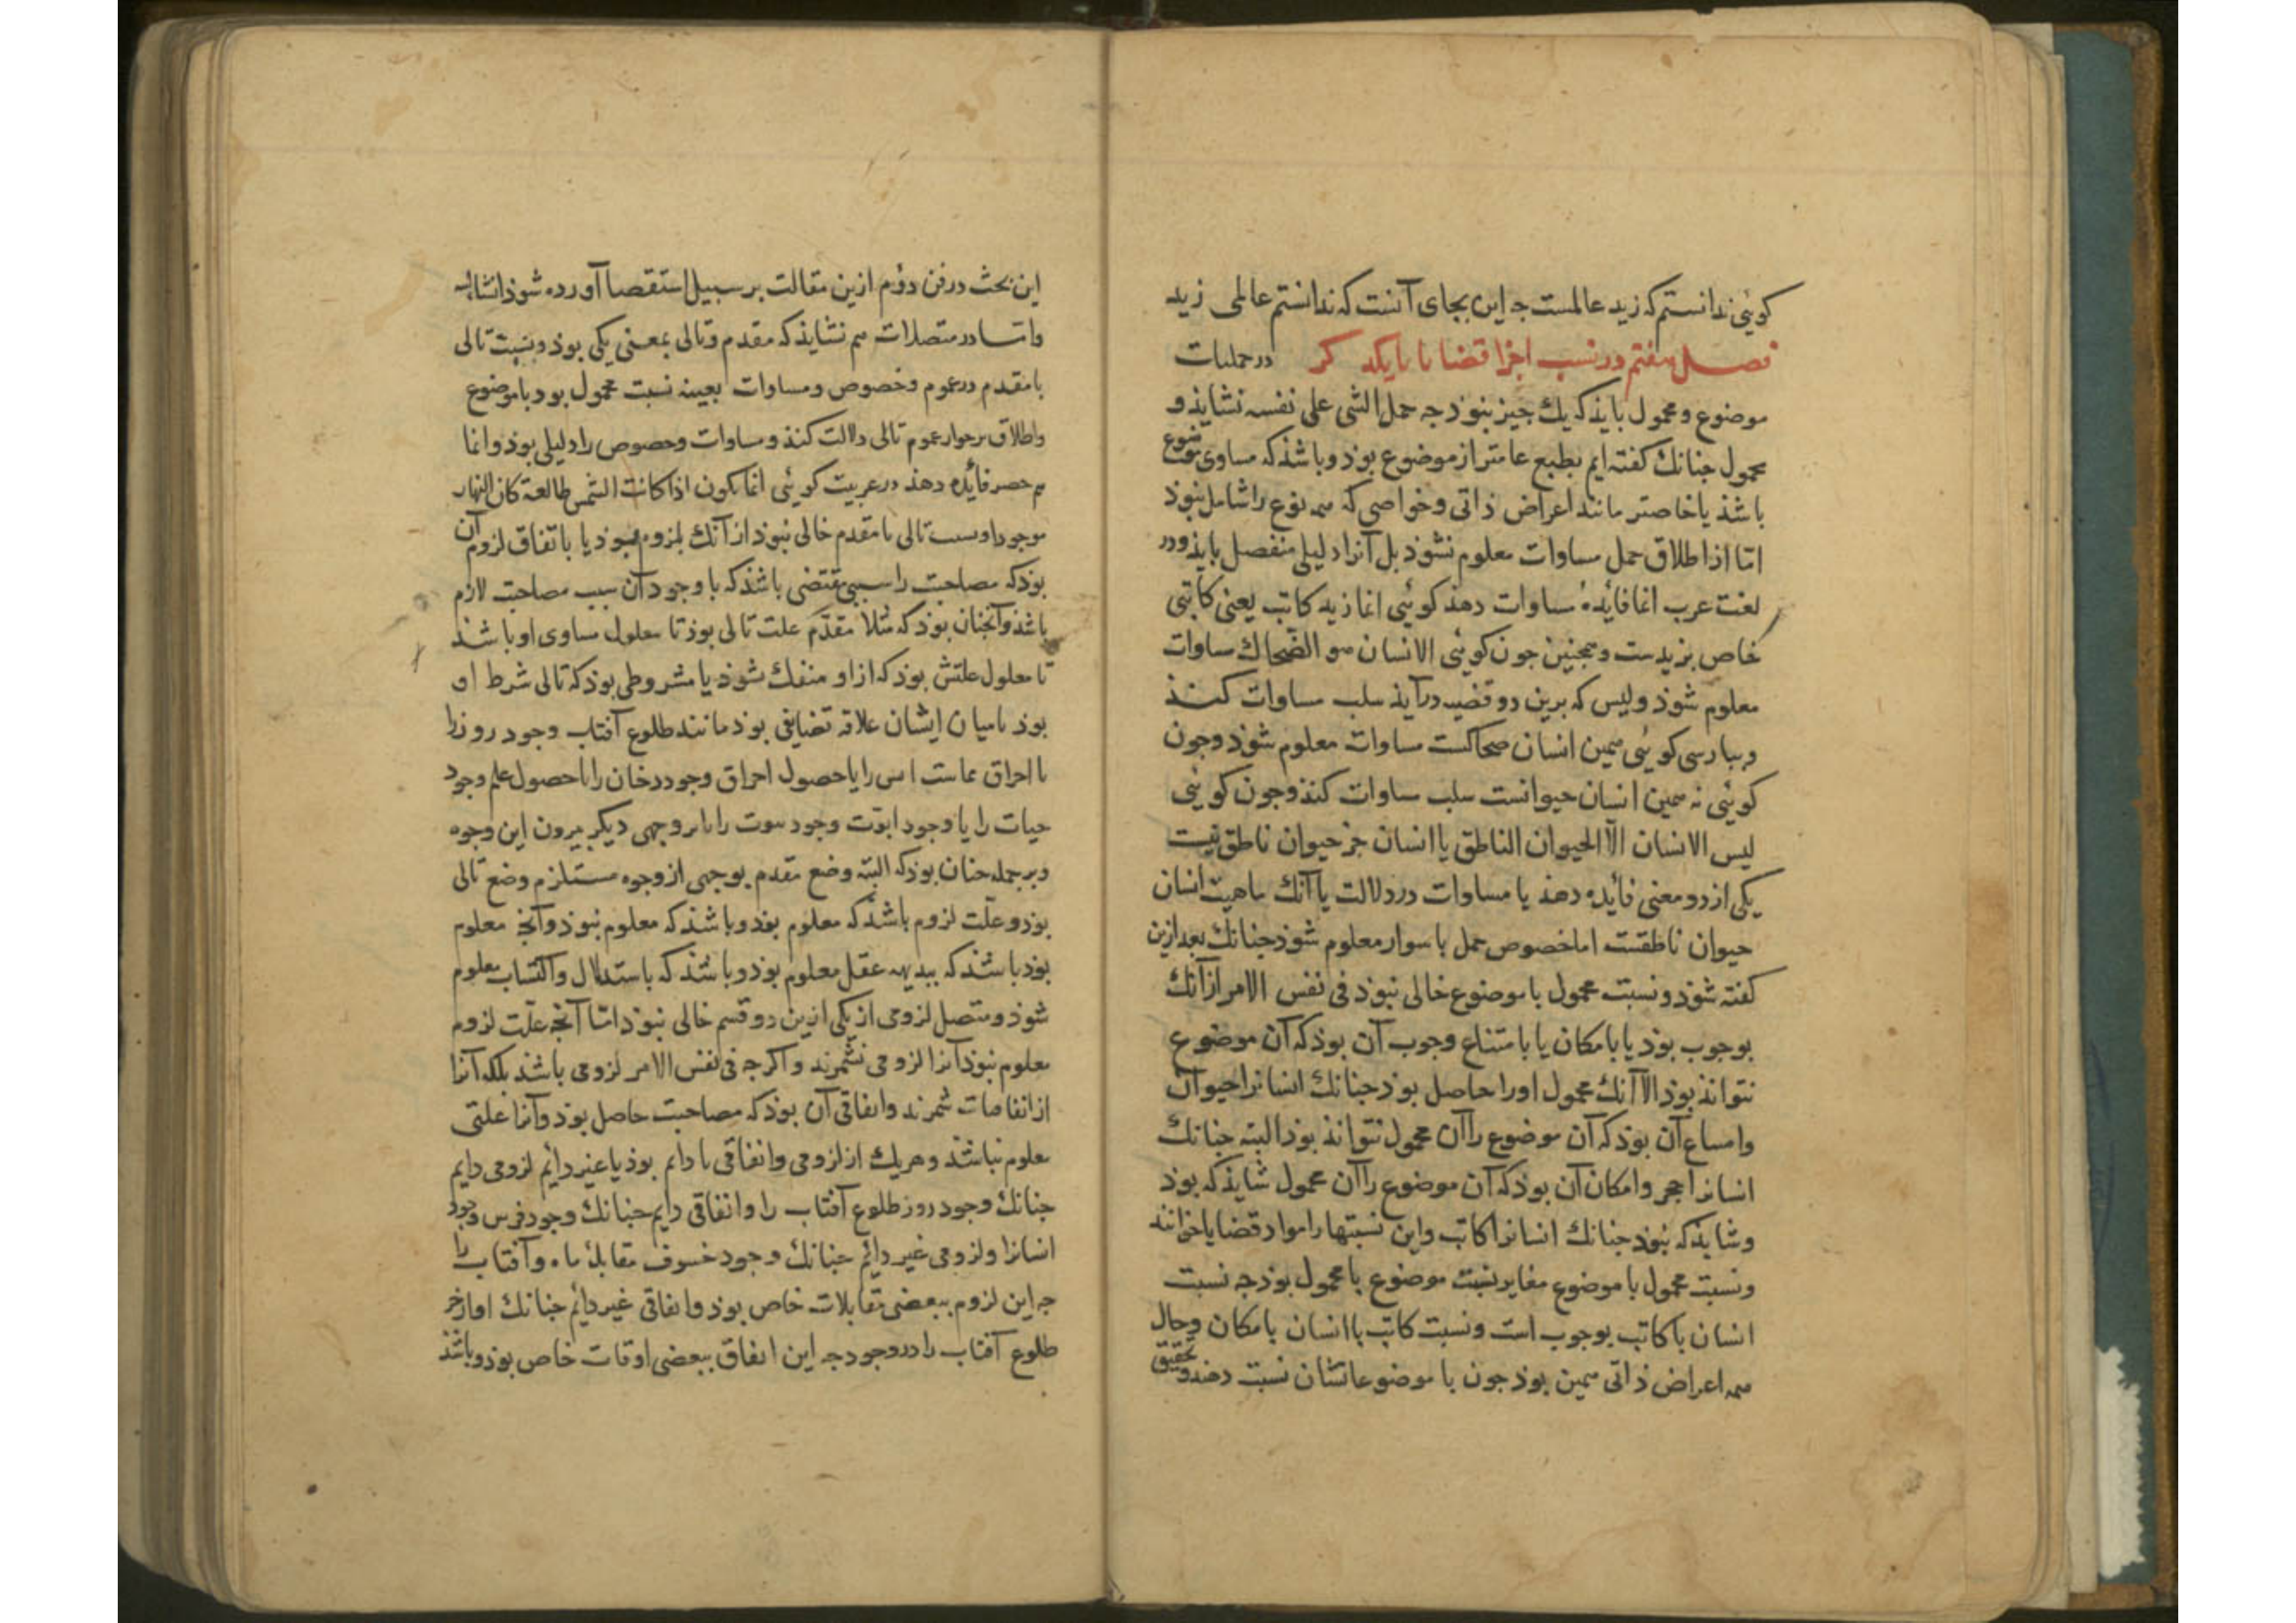 کوئی ندانستم که زید عالمست جه این بجای آنست که ندانستم عالمی زید
فصل هفتم در نسب اجزا قضایا با یکدیکر در حملیات
موضوع و محمول باید که یك جیز نبوذ جه حمل الشی علی نفسه نشایذ و
محمول جنانك کفته ایم بطبع عامتر از موضوع بوذ و باشذ که مساوی موضوع
باشذ یا خاصتر مانند اعراض ذاتی و خواصی که همه نوع را شامل نبوذ
امّا از اطلاق حمل مساوات معلوم نشوذ بل آنرا دلیلی منفصل بایذ و در
لغت عرب انما فایدهٔ مساوات دهذ کوئی انما زید کاتب یعنی کاتبی
خاص بزیدست و همجنین جون کوئی الانسان هو الضّحاك مساوات
معلوم شوذ و لیس که برین دو قضیه درآیذ سلب مساوات کنذ
و ببارسی کوئی همین انسان ضحاکست مساوات معلوم شوذ و جون
کوئی نه همین انسان حیوانست سلب مساوات کنذ و جون کوئی
لیس الانسان الّا الحیوان الناطق یا انسان جز حیوان ناطق نیست
یکی از دو معنی فایده دهذ یا مساوات در دلالت یا آنك ماهیت انسان
حیوان ناطقست اما خصوص حمل با سوار معلوم شوذ جنانك بعد ازین
کفته شوذ و نسبت محمول با موضوع خالی نبوذ فی نفس الامر از آنك
بوجوب بوذ یا بامکان یا بامتناع وجوب آن بوذ که آن موضوع
نتوانذ بوذ الا آنك محمول او را حاصل بوذ جنانك انسانرا حیوان
و امتناع آن بوذ که آن موضوع را آن محمول نتوانذ بوذ البته جنانك
انسانرا حجر و امکان آن بوذ که آن موضوع را آن محمول شایذ که بوذ
و شایذ که نبوذ جنانك انسانرا کاتب و این نسبتها را مواد قضایا خوانند
و نسبت محمول با موضوع مغایر نسبت موضوع با محمول بوذ جه نسبت
انسان با کاتب بوجوب است و نسبت کاتب با انسان بامکان و حال
همه اعراض ذاتی همین بوذ جون با موضوعاتشان نسبت دهند و تحقیق
این بحث در فن دوم ازین مقالت بر سبیل استقصا آورده شوذ انشاالله
و امّا در متصلات هم نشایذ که مقدم و تالی بمعنی یکی بوذ و نسبت تالی
با مقدم در عموم و خصوص و مساوات بعینه نسبت محمول بود با موضوع
و اطلاق بر جواز عموم تالی دلالت کنذ و مساوات و خصوص را دلیلی بوذ و انما
هم حصر فایده دهذ در عربیت کوئی انما یکون اذا کانت الشمس طالعة کان النهار
موجودا و نسبت تالی با مقدم خالی نبوذ از آنك بلزوم بوذ یا باتفاق لزوم آن
بوذ که مصاحبت را سببی مقتضی باشذ که با وجود آن سبب مصاحبت لازم
باشذ و آنجنان بوذ که مثلا مقدّم علت تالی بوذ تا معلول مساوی او باشذ
تا معلول علتش بوذ که ازاو منفك نشوذ یا مشروطی بوذ که تالی شرط او
بوذ یا میان ایشان علاقه تضایفی بوذ مانند طلوع آفتاب وجود روز را
یا احراق مماست آتش را یا حصول احراق وجود دخان را یا حصول علم وجود
حیات را یا وجود ابوّت وجود بنوت را یا بر وجهی دیکر بیرون این وجوه
و بر جمله جنان بوذ که البتّه وضع مقدم بوجهی از وجوه مستلزم وضع تالی
بوذ و علّت لزوم باشذ که معلوم بوذ و باشذ که معلوم نبوذ و آنجه معلوم
بوذ باشذ که ببدیهه عقل معلوم بوذ و باشذ که باستدلال و اکتساب معلوم
شوذ و متصل لزومی از یکی ازین دو قسم خالی نبوذ امّا آنجه علّت لزوم
معلوم نبوذ آنرا لزومی نشمرند و اکرجه فی نفس الامر لزومی باشذ بلکه آنرا
از اتفاقیات شمرند و اتفاقی آن بوذ که مصاحبت حاصل بوذ و آنرا علتی
معلوم نباشذ و هریك از لزومی و اتفاقی یا دائم بوذ یا غیر دائم لزومی دایم
جنانك وجود روز طلوع آفتاب را و اتفاقی دایم جنانك وجود فرس وجود
انسانرا و لزومی غیر دائم جنانك وجود خسوف مقابلهٔ ماه و آفتاب را
جه این لزوم ببعضی مقابلات خاص بوذ و اتفاقی غیر دائم جنانك اواز خر
طلوع آفتاب را در وجود جه این اتفاق ببعضی اوقات خاص بوذ و باشذ